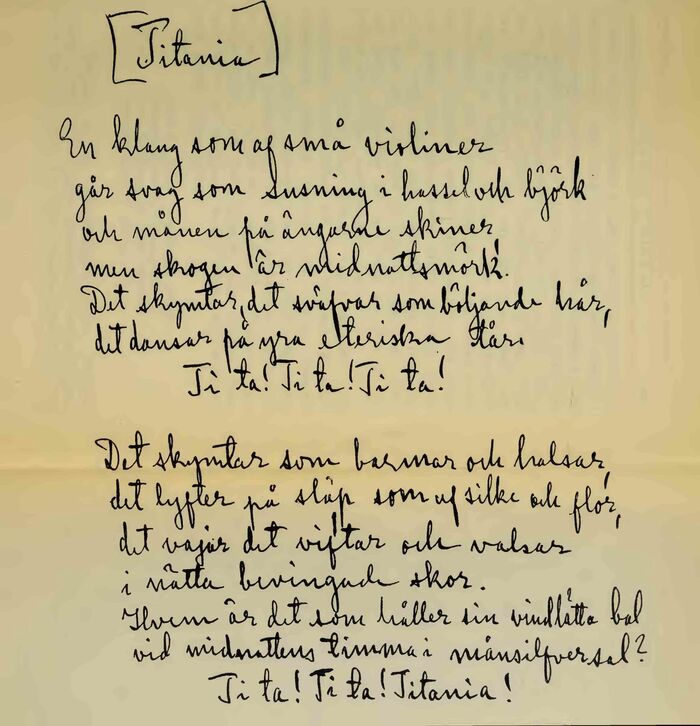 [Titania]
En klang som af små violiner
går svag som susning i hassel och björk
och månen på ängarne skiner,
men skogen är midnattsmörk.
Det skymtar, det sväfvar som böljande hår,
det dansar på yra eteriska tår.
Ti ta! Ti ta! Ti ta!
Det skymtar som barmar och halsar,
det lyfter på släp som af silke och flor,
det vajar det viftar och valsar
i nätta bevingade skor.
Hvem är det som håller sin vindlätta bal
vid midnattens timma i månsilfversal?
Ti ta! Ti ta! Titania!